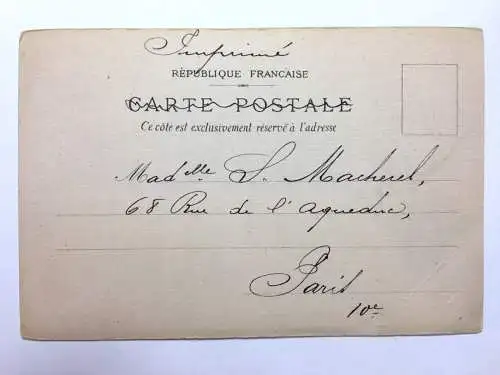 Imprimé
RÉPUBLIQUE FRANÇAISE
CARTE POSTALE
Ce côté est exclusivement réservé à l'adresse
Madelle S. Macherel,
68 Rue de l'Aqueduc,
Paris
10e